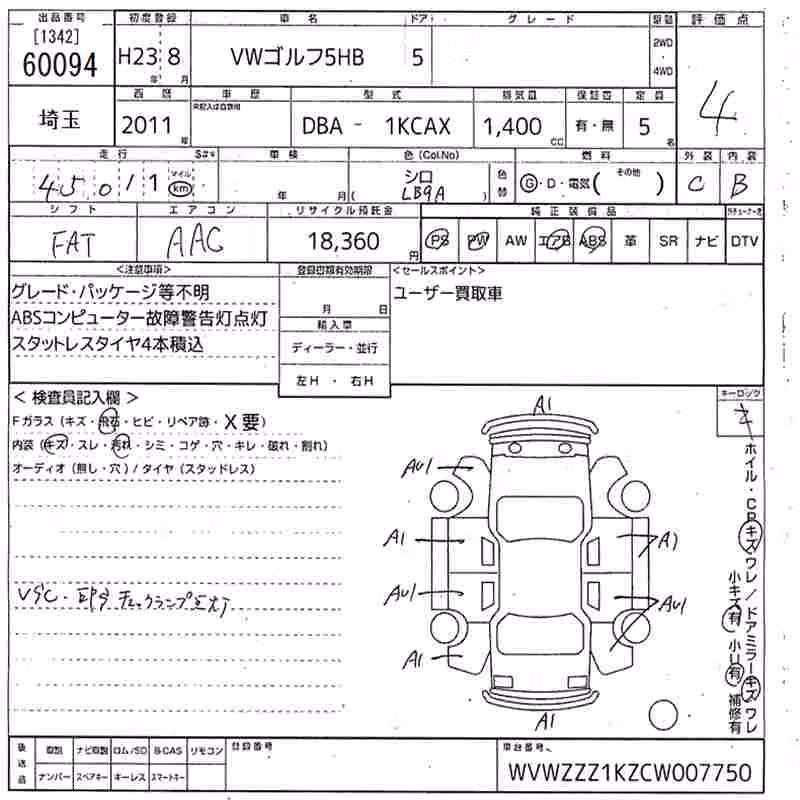 出品番号 初度登録 車名 ドア グレード 駆動 評価点
[1342]
60094 H23 8 VWゴルフ5HB 5 2WD 4WD 4
年 月
埼玉 西暦 車歴 型式 排気量 保証書 定員
未記入は自家用
2011 年 DBA - 1KCAX 1,400 CC 有・無 5 名
走行 S#* 車検 色(Col.No) 燃料 外装 内装
45011 マイル km 年 月( シロ LB9A ) 色替 G・D・電気( その他 ) C B
シフト エアコン リサイクル預託金 純正装備品
FAT AAC 18,360 円 PS PW AW エアB ABS 革 SR ナビ DTV
<注意事項> 登録書類有効期限 <セールスポイント>
グレード・パッケージ等不明 ユーザー買取車
月 日
ABSコンピューター故障警告灯点灯 輸入車
スタットレスタイヤ4本積込 ディーラー・並行
左H ・ 右H
<検査員記入欄> キーロック
Fガラス(キズ・飛石・ヒビ・リペア跡・X要)
内装(キズ・スレ・汚れ・シミ・コゲ・穴・キレ・破れ・割れ)
オーディオ(無し・穴)/タイヤ(スタッドレス)
A1
AU1
A1 A1
AU1 AU1
A1
A1
VSC・EPS チェックランプ点灯
ホイル・CPキズワレ/ドアミラーキズワレ
小キズ有 小U有 補修有
後送品 取説 ナビ取説 ロム/SD B-CAS リモコン 登録番号 車台番号
ナンバー スペアキー キーレス スマートキー WVWZZZ1KZCW007750